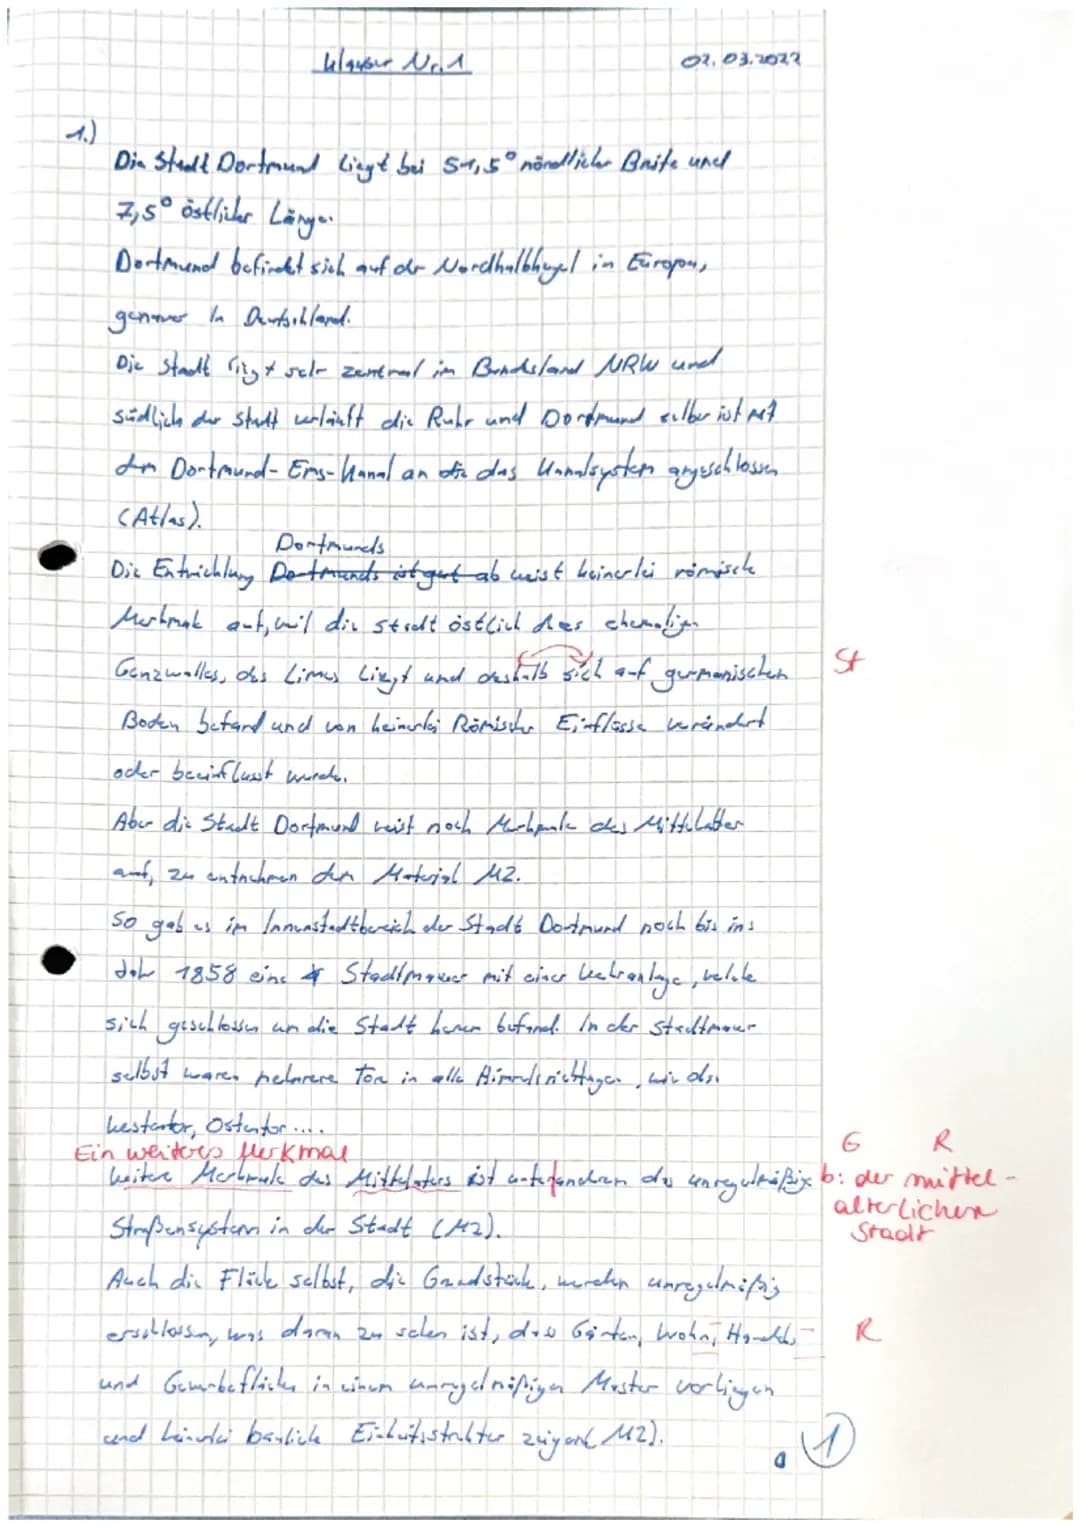 Klausur Nr. 1
02.03.2022
1.)
Die Stadt Dortmund liegt bei 51,5° nördlicher Breite und
7,5° östlicher Länge.
Dortmund befindet sich auf der Nordhalbkugel in Europa,
genauer in Deutschland.
Die Stadt liegt sehr zentral im Bundesland NRW und
südlich der Stadt verläuft die Ruhr und Dortmund selber ist mit
dem Dortmund-Ems-Kanal an die das Kanalsystem angeschlossen
(Atlas).
Dortmunds
Die Entwicklung Dortmunds ist gut ab weist keinerlei römische
Merkmale auf, weil die Stadt östlich des ehemaligen
Genzwalles, des Limes liegt und deshalb sich auf germanischen
St
Boden befand und von keinerlei Römische Einflüsse verändert
oder beeinflusst wurde.
Aber die Stadt Dortmund weist noch Merkmale des Mittelalter
auf, zu entnehmen dem Material M2.
So gab es im Innenstadtbereich der Stadt Dortmund noch bis ins
Jahr 1858 eine Stadtmauer mit einer Wehranlage, welche
sich geschlossen um die Stadt herum befand. In der Stadtmauer
selbst waren mehrere Tore in alle Himmelsrichtungen, wie das
Westentor, Ostentor....
Ein weiteres Merkmal
G R
Weitere Merkmale des Mittelalters ist unter anderem das unregelmäßige
b: der mittel-
alterlichen
Stadt
Straßensystem in der Stadt (M2).
Auch die Fläche selbst, die Grundstück, werden unregelmäßig
erschlossen, was daran zu sehen ist, dass Gärten, Wohn, Handels-
R
und Gewerbeflächen in einem unregelmäßigen Muster vorliegen
und keinerlei bauliche Einheitsstruktur zeigen (M2).
1